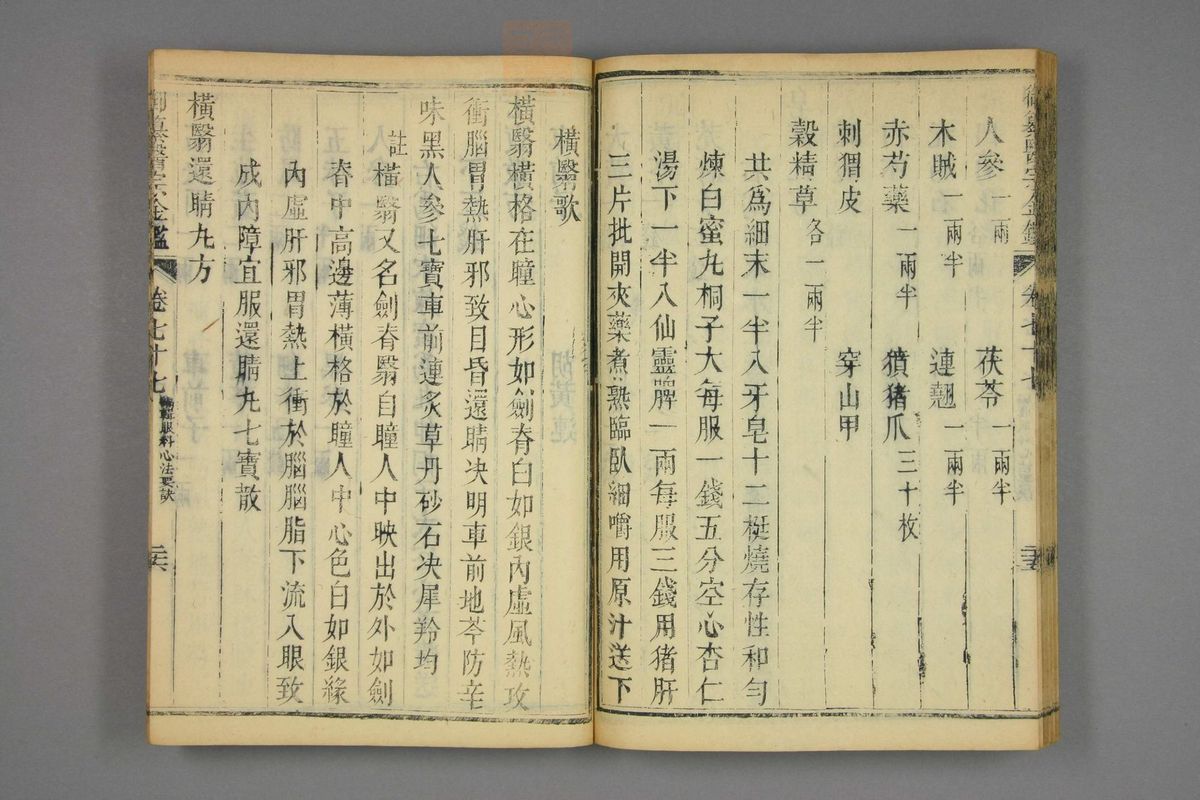 人參一兩 茯苓一兩半
木賊一兩半 連翹一兩半
赤芍藥一兩半 獖猪爪三十枚
刺猬皮 穿山甲
穀精草各一兩半
共爲細末一半入牙皂十二梃燒存性和勻
煉白蜜丸桐子大每服一錢五分空心杏仁
湯下一半入仙靈脾一兩每服三錢用猪肝
三片批開夾藥煮熟臨臥細嚼用原汁送下
橫翳歌
橫翳橫格在瞳心形如劍脊白如銀內虛風熱攻
衝腦胃熱肝邪致目昏還睛決明車前地芩防辛
味黑人參七寶車前連炙草丹砂石決犀羚均
註橫翳又名劍脊翳自瞳人中映出於外如劍
脊中高邊薄橫格於瞳人中心色白如銀緣
內虛肝邪胃熱上衝於腦腦脂下流入眼致
成內障宜服還睛丸七寶散
橫翳還睛丸方
卷七十七
編輯眼科心法要訣
二十六